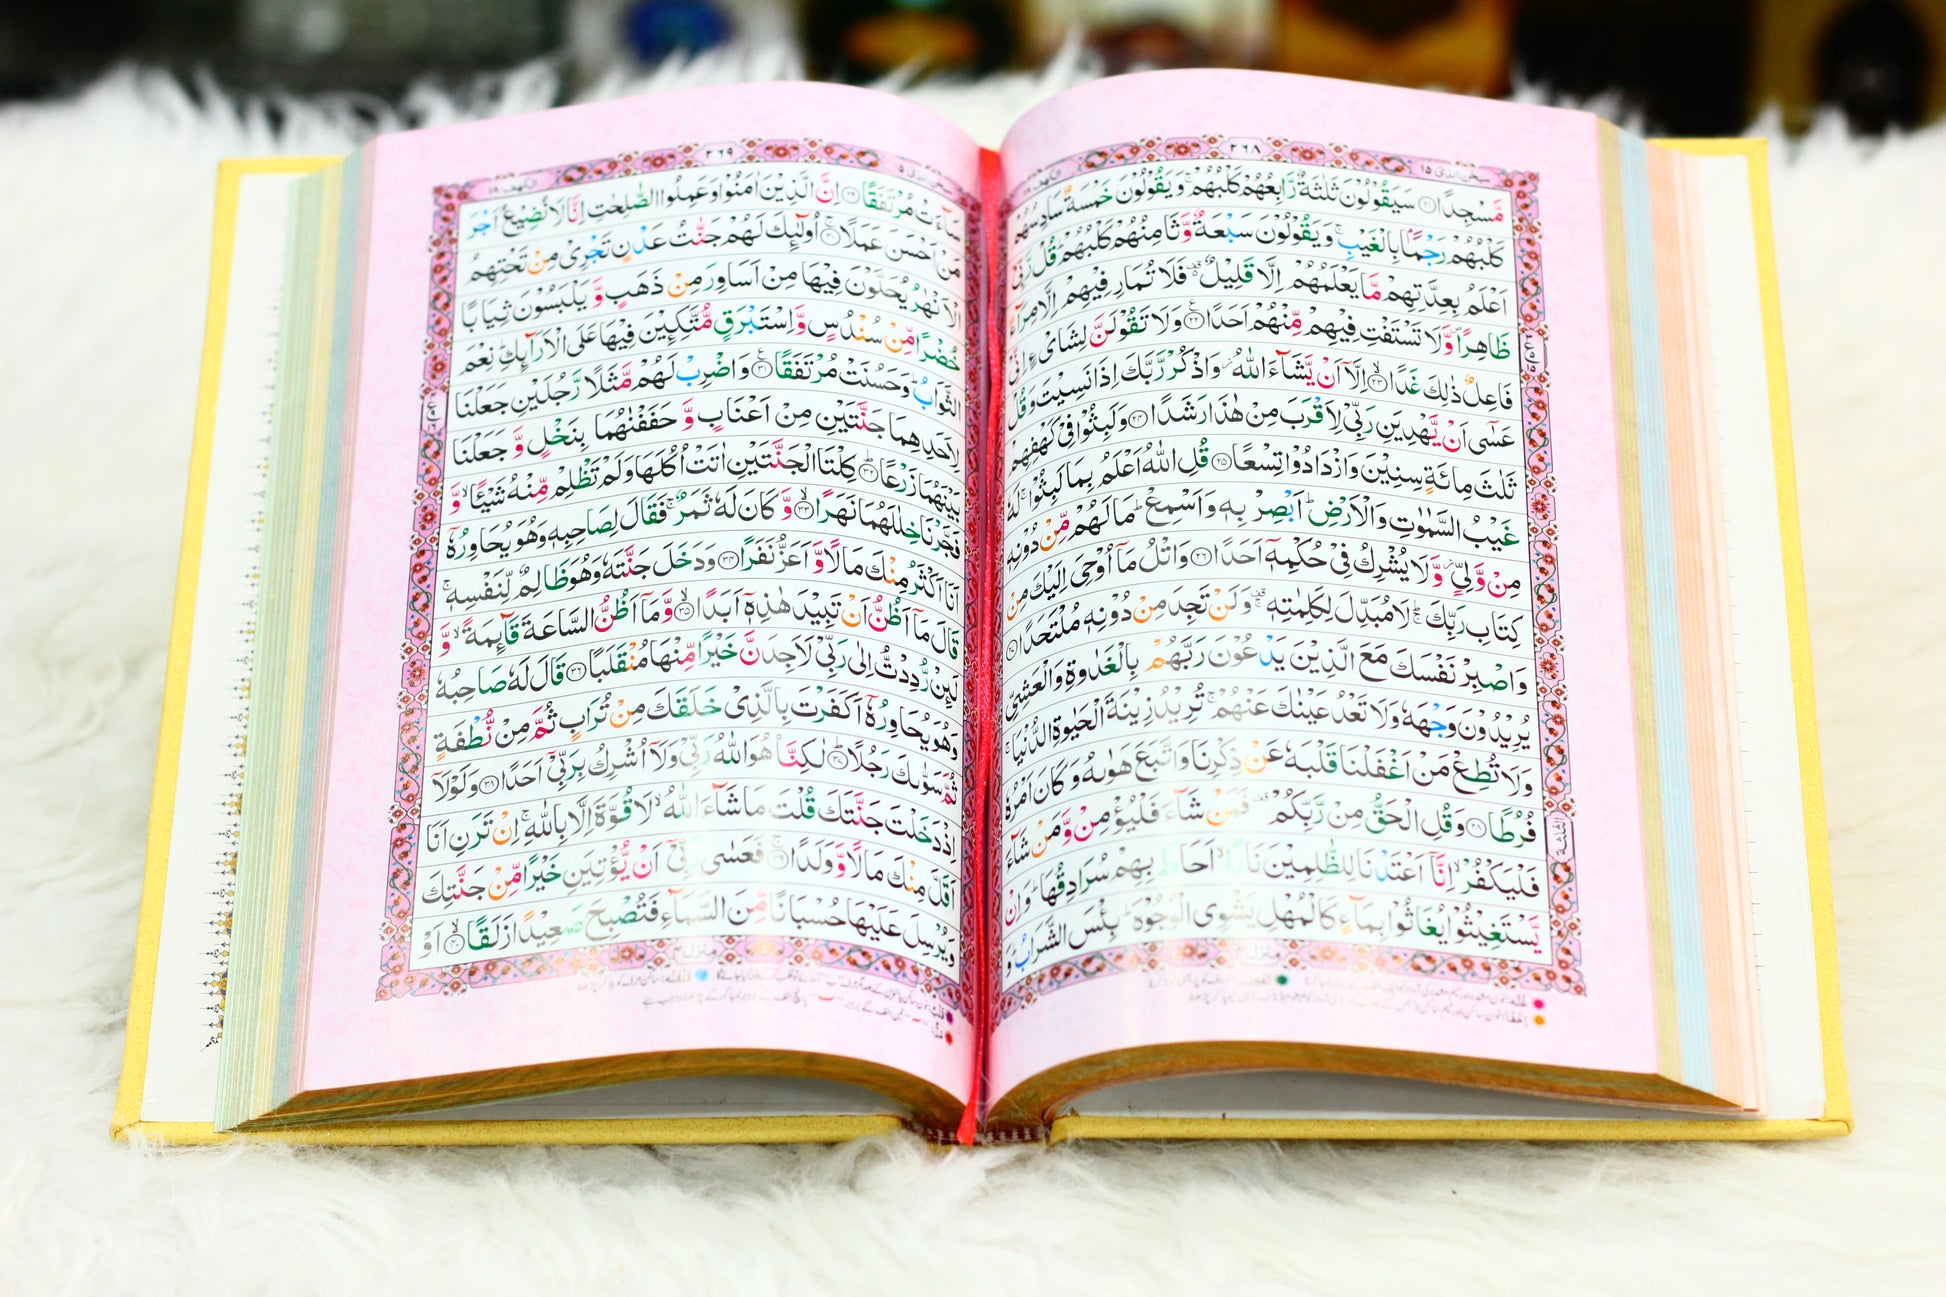 ٢٦٨
سبحٰن الذی ١٥
الکهف ١٨
مَّسۡجِدًا ﴿۲۱﴾ سَیَقُوۡلُوۡنَ ثَلٰثَۃٌ رَّابِعُہُمۡ کَلۡبُہُمۡ ۚ وَ یَقُوۡلُوۡنَ خَمۡسَۃٌ سَادِسُہُمۡ
کَلۡبُہُمۡ رَجۡمًۢا بِالۡغَیۡبِ ۚ وَ یَقُوۡلُوۡنَ سَبۡعَۃٌ وَّ ثَامِنُہُمۡ کَلۡبُہُمۡ ؕ قُلۡ رَّبِّیۡۤ
اَعۡلَمُ بِعِدَّتِہِمۡ مَّا یَعۡلَمُہُمۡ اِلَّا قَلِیۡلٌ ۬۟ فَلَا تُمَارِ فِیۡہِمۡ اِلَّا مِرَآءً
ظَاہِرًا ۪ وَّ لَا تَسۡتَفۡتِ فِیۡہِمۡ مِّنۡہُمۡ اَحَدًا ﴿۲۲﴾ وَ لَا تَقُوۡلَنَّ لِشَایۡءٍ اِنِّیۡ
فَاعِلٌ ذٰلِکَ غَدًا ﴿ۙ۲۳﴾ اِلَّاۤ اَنۡ یَّشَآءَ اللّٰہُ ۫ وَ اذۡکُرۡ رَّبَّکَ اِذَا نَسِیۡتَ وَ قُلۡ
عَسٰۤی اَنۡ یَّہۡدِیَنِ رَبِّیۡ لِاَقۡرَبَ مِنۡ ہٰذَا رَشَدًا ﴿۲۴﴾ وَ لَبِثُوۡا فِیۡ کَہۡفِہِمۡ
ثَلٰثَ مِائَۃٍ سِنِیۡنَ وَ ازۡدَادُوۡا تِسۡعًا ﴿۲۵﴾ قُلِ اللّٰہُ اَعۡلَمُ بِمَا لَبِثُوۡا ۚ لَہٗ
غَیۡبُ السَّمٰوٰتِ وَ الۡاَرۡضِ ؕ اَبۡصِرۡ بِہٖ وَ اَسۡمِعۡ ؕ مَا لَہُمۡ مِّنۡ دُوۡنِہٖ
مِنۡ وَّلِیٍّ ۫ وَّ لَا یُشۡرِکُ فِیۡ حُکۡمِہٖۤ اَحَدًا ﴿۲۶﴾ وَ اتۡلُ مَاۤ اُوۡحِیَ اِلَیۡکَ مِنۡ
کِتَابِ رَبِّکَ ۚؕ لَا مُبَدِّلَ لِکَلِمٰتِہٖ ۚ۟ وَ لَنۡ تَجِدَ مِنۡ دُوۡنِہٖ مُلۡتَحَدًا ﴿۲۷﴾
وَ اصۡبِرۡ نَفۡسَکَ مَعَ الَّذِیۡنَ یَدۡعُوۡنَ رَبَّہُمۡ بِالۡغَدٰوۃِ وَ الۡعَشِیِّ
یُرِیۡدُوۡنَ وَجۡہَہٗ وَ لَا تَعۡدُ عَیۡنٰکَ عَنۡہُمۡ ۚ تُرِیۡدُ زِیۡنَۃَ الۡحَیٰوۃِ الدُّنۡیَا ۚ
وَ لَا تُطِعۡ مَنۡ اَغۡفَلۡنَا قَلۡبَہٗ عَنۡ ذِکۡرِنَا وَ اتَّبَعَ ہَوٰىہُ وَ کَانَ اَمۡرُہٗ
فُرُطًا ﴿۲۸﴾ وَ قُلِ الۡحَقُّ مِنۡ رَّبِّکُمۡ ۟ فَمَنۡ شَآءَ فَلۡیُؤۡمِنۡ وَّ مَنۡ شَآءَ
فَلۡیَکۡفُرۡ ۙ اِنَّاۤ اَعۡتَدۡنَا لِلظّٰلِمِیۡنَ نَارًا ۙ اَحَاطَ بِہِمۡ سُرَادِقُہَا ؕ وَ اِنۡ
یَّسۡتَغِیۡثُوۡا یُغَاثُوۡا بِمَآءٍ کَالۡمُہۡلِ یَشۡوِی الۡوُجُوۡہَ ؕ بِئۡسَ الشَّرَابُ ؕ وَ
٢٦٩
الکهف ١٨
سَآءَتۡ مُرۡتَفَقًا ﴿۲۹﴾ اِنَّ الَّذِیۡنَ اٰمَنُوۡا وَ عَمِلُوا الصّٰلِحٰتِ اِنَّا لَا نُضِیۡعُ اَجۡرَ
مَنۡ اَحۡسَنَ عَمَلًا ﴿ۚ۳۰﴾ اُولٰٓئِکَ لَہُمۡ جَنّٰتُ عَدۡنٍ تَجۡرِیۡ مِنۡ تَحۡتِہِمُ
الۡاَنۡہٰرُ یُحَلَّوۡنَ فِیۡہَا مِنۡ اَسَاوِرَ مِنۡ ذَہَبٍ وَّ یَلۡبَسُوۡنَ ثِیَابًا
خُضۡرًا مِّنۡ سُنۡدُسٍ وَّ اِسۡتَبۡرَقٍ مُّتَّکِـِٕیۡنَ فِیۡہَا عَلَی الۡاَرَآئِکِ ؕ نِعۡمَ
الثَّوَابُ ؕ وَ حَسُنَتۡ مُرۡتَفَقًا ﴿۳۱﴾ وَ اضۡرِبۡ لَہُمۡ مَّثَلًا رَّجُلَیۡنِ جَعَلۡنَا
لِاَحَدِہِمَا جَنَّتَیۡنِ مِنۡ اَعۡنَابٍ وَّ حَفَفۡنٰہُمَا بِنَخۡلٍ وَّ جَعَلۡنَا
بَیۡنَہُمَا زَرۡعًا ﴿ؕ۳۲﴾ کِلۡتَا الۡجَنَّتَیۡنِ اٰتَتۡ اُکُلَہَا وَ لَمۡ تَظۡلِمۡ مِّنۡہُ شَیۡئًا ۙ وَّ
فَجَّرۡنَا خِلٰلَہُمَا نَہَرًا ﴿ۙ۳۳﴾ وَّ کَانَ لَہٗ ثَمَرٌ ۚ فَقَالَ لِصَاحِبِہٖ وَ ہُوَ یُحَاوِرُہٗۤ
اَنَا اَکۡثَرُ مِنۡکَ مَالًا وَّ اَعَزُّ نَفَرًا ﴿۳۴﴾ وَ دَخَلَ جَنَّتَہٗ وَ ہُوَ ظَالِمٌ لِّنَفۡسِہٖ ۚ
قَالَ مَاۤ اَظُنُّ اَنۡ تَبِیۡدَ ہٰذِہٖۤ اَبَدًا ﴿ۙ۳۵﴾ وَّ مَاۤ اَظُنُّ السَّاعَۃَ قَآئِمَۃً ۙ وَّ
لَئِنۡ رُّدِدۡتُّ اِلٰی رَبِّیۡ لَاَجِدَنَّ خَیۡرًا مِّنۡہَا مُنۡقَلَبًا ﴿۳۶﴾ قَالَ لَہٗ صَاحِبُہٗ
وَ ہُوَ یُحَاوِرُہٗۤ اَکَفَرۡتَ بِالَّذِیۡ خَلَقَکَ مِنۡ تُرَابٍ ثُمَّ مِنۡ نُّطۡفَۃٍ
ثُمَّ سَوّٰىکَ رَجُلًا ﴿ؕ۳۷﴾ لٰکِنَّا۠ ہُوَ اللّٰہُ رَبِّیۡ وَ لَاۤ اُشۡرِکُ بِرَبِّیۡۤ اَحَدًا ﴿۳۸﴾ وَ لَوۡ لَاۤ
اِذۡ دَخَلۡتَ جَنَّتَکَ قُلۡتَ مَا شَآءَ اللّٰہُ ۙ لَا قُوَّۃَ اِلَّا بِاللّٰہِ ۚ اِنۡ تَرَنِ اَنَا
اَقَلَّ مِنۡکَ مَالًا وَّ وَلَدًا ﴿ۚ۳۹﴾ فَعَسٰی رَبِّیۡۤ اَنۡ یُّؤۡتِیَنِ خَیۡرًا مِّنۡ جَنَّتِکَ
وَ یُرۡسِلَ عَلَیۡہَا حُسۡبَانًا مِّنَ السَّمَآءِ فَتُصۡبِحَ صَعِیۡدًا زَلَقًا ﴿ۙ۴۰﴾ اَوۡ